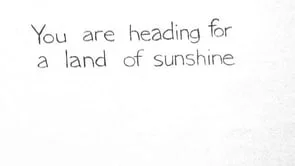 You are heading for
a land of sunshine